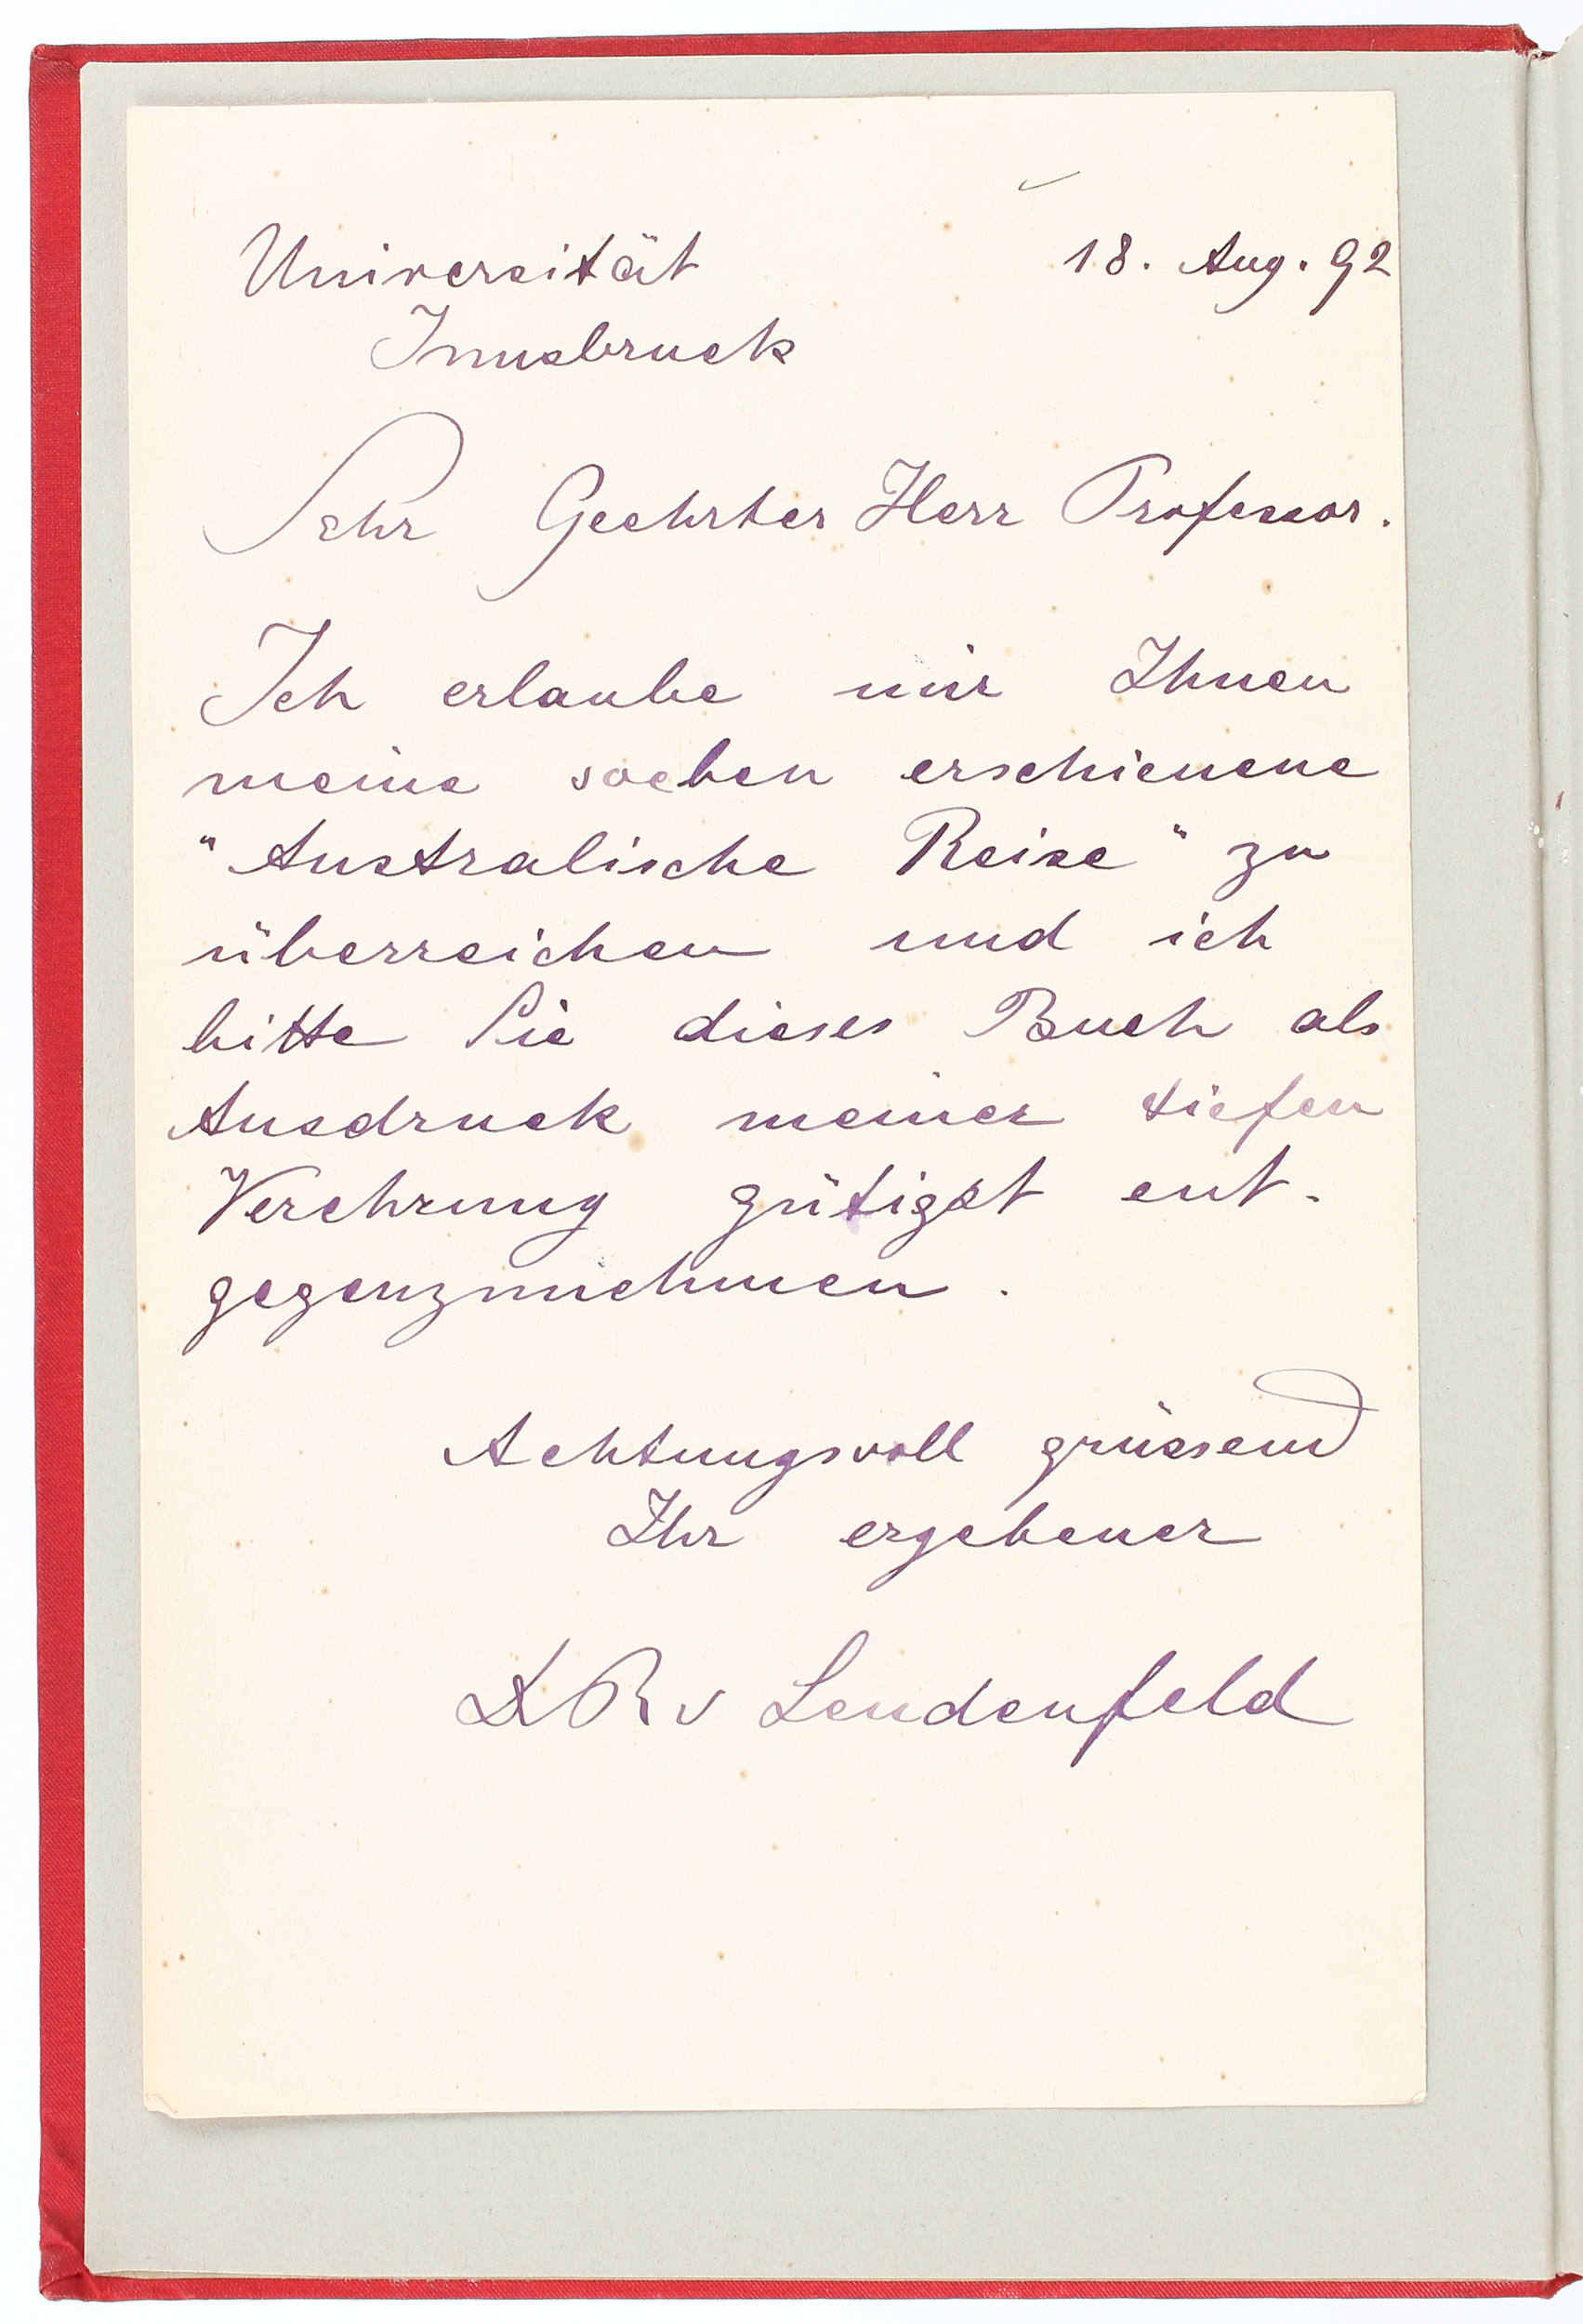 Universität 18. Aug. 92
Innsbruck
Sehr Geehrter Herr Professor.
Ich erlaube mir Ihnen
meine soeben erschienene
"Australische Reise" zu
überreichen und ich
bitte Sie dieses Buch als
Ausdruck meiner tiefen
Verehrung gütigst ent-
gegenzunehmen.
Achtungsvoll grüssend
Ihr ergebener
R v Lendenfeld